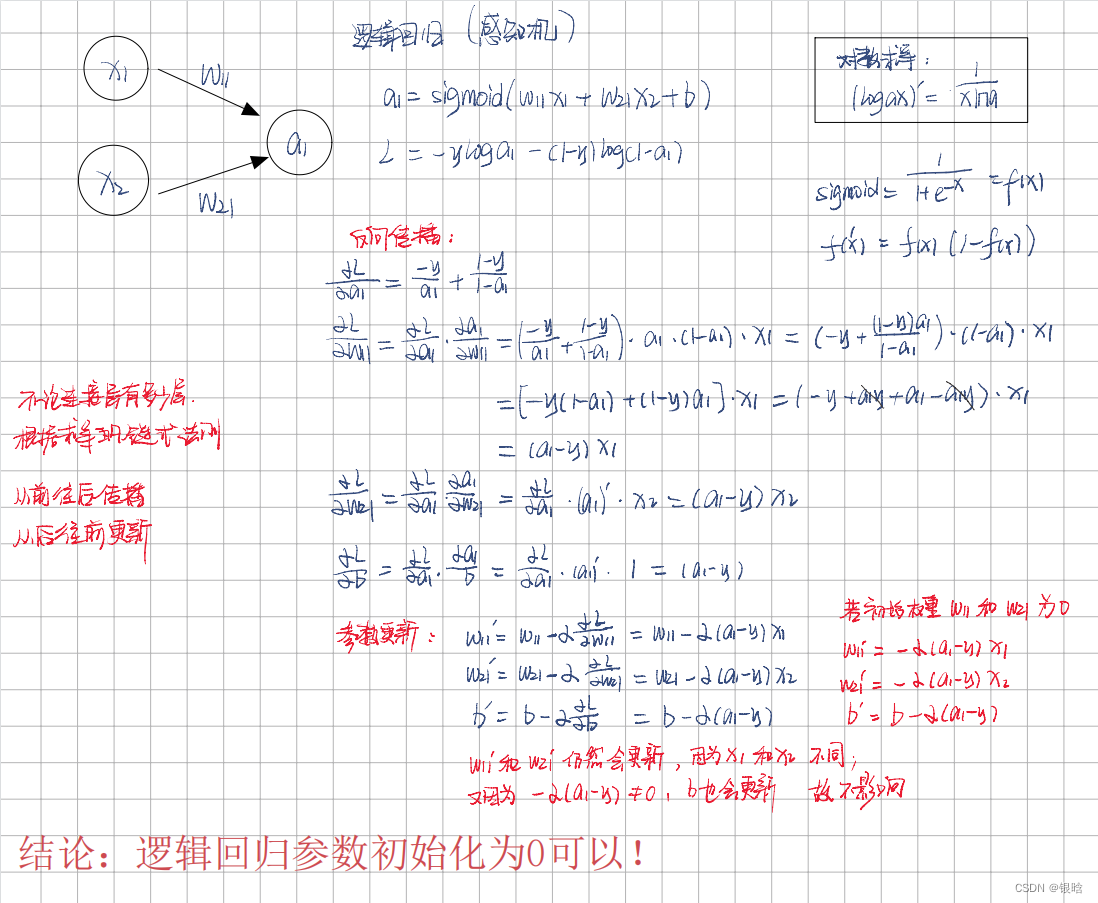 逻辑回归（感知机）
x1
w11
a1
x2
w21
a1 = sigmoid(w11x1 + w21x2 + b)
L = -yloga1 - (1-y)log(1-a1)
对数求导：
(logax)' = 1/xlna
sigmoid = 1/1+e^-x = f(x)
f(x)' = f(x)(1-f(x))
反向传播：
∂L/∂a1 = -y/a1 + 1-y/1-a1
∂L/∂w11 = ∂L/∂a1 · ∂a1/∂w11 = (-y/a1 + 1-y/1-a1) · a1 · (1-a1) · x1 = (-y + (1-y)a1/1-a1) · (1-a1) · x1
= [-y(1-a1) + (1-y)a1] · x1 = (-y + a1y + a1 - a1y) · x1
= (a1-y) x1
∂L/∂w21 = ∂L/∂a1 · ∂a1/∂w21 = ∂L/∂a1 · (a1)' · x2 = (a1-y) x2
∂L/∂b = ∂L/∂a1 · ∂a1/b = ∂L/∂a1 · (a1)' · 1 = (a1-y)
不论连接层有多少层.
根据求导 链式法则
从前往后传播
从后往前更新
参数更新：
w11' = w11 - α ∂L/∂w11 = w11 - α(a1-y) x1
w21' = w21 - α ∂L/∂w21 = w21 - α(a1-y) x2
b' = b - α ∂L/∂b = b - α(a1-y)
若初始权重 w11 和 w21 为0
w11' = -α(a1-y) x1
w21' = -α(a1-y) x2
b' = b - α(a1-y)
w11' 和 w21' 仍然会更新，因为 x1 和 x2 不同；
又因为 -α(a1-y) ≠ 0，b也会更新 故不影响
结论：逻辑回归参数初始化为0可以！
CSDN @银晗